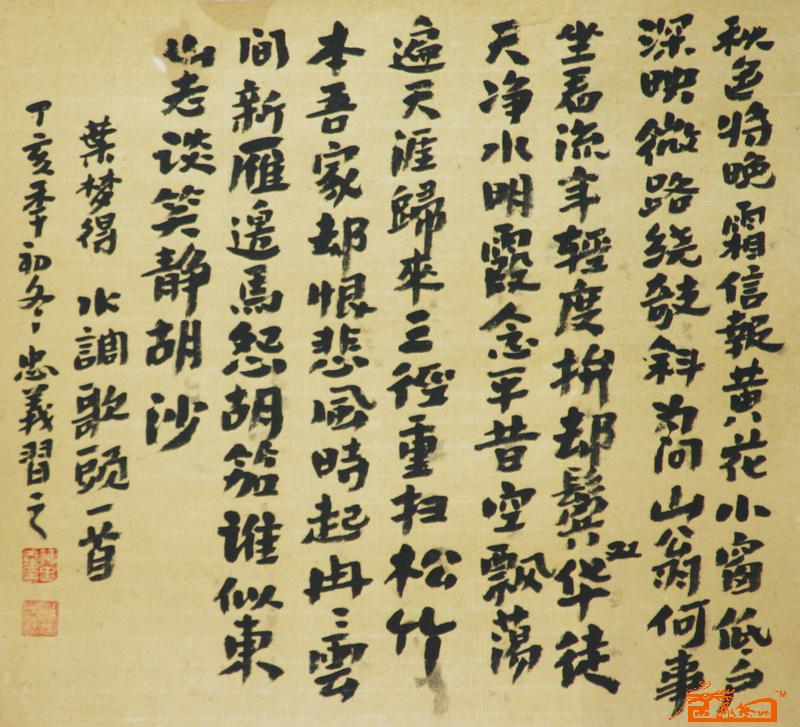 秋色将晚霜信報黄花小窗低户
深映微路绕敧斜為问山翁何事
坐看流年輕度拚却鬓双华徒
天净水明霞念平昔空飘荡
遍天涯歸來三徑重扫松竹
本吾家却恨悲風時起冉〻雲
间新雁邊馬怨胡笳谁似東
山老谈笑静胡沙
葉梦得 水調歌頭一首
丁亥季初冬忠義習之